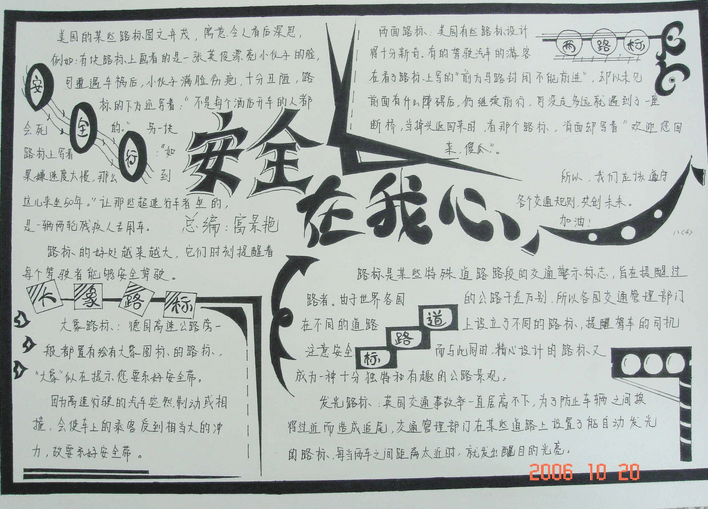 美国的某些路标图文并茂，寓意令人看后深思，
例如：有块路标上画着的是一张英俊漂亮小伙子的脸，
可遭遇车祸后，小伙子满脸伤疤，十分丑陋，路
标的下方还写着：“不是每个酒后开车的人都
会死的。”另一块
路标上写着：“如
果嫌速度太慢，那么到
这儿来走50年。”让那些超速行车者坐的，
是一辆两轮残疾人专用车。
路标的好处越来越大，它们时刻提醒着
每个驾驶者能够安全驾驶。
安全行
安全
在我心
总编：高景艳
两路标
两面路标：美国有些路标设计
得十分新奇，有的驾驶汽车的游客
在看了路标上写的“前方马路封闭不能前进”，却以未见
前面有什么障碍后，仍继续前行，可没走多远就遇到了一座
断桥，当掉头返回来时，看那个路标，背面却写着“欢迎您回
来，傻瓜”。
所以，我们应该遵守
各个交通规则，共创未来。
加油！
大象路标
大象路标：德国高速公路旁一
般都置有绘有大象图标的路标，
“大象”似在提示您要系好安全带。
因为高速行驶的汽车忽然制动或相
撞，会使车上的乘客受到相当大的冲
力，故要系好安全带。
道路标
路标是某些特殊道路路段的交通警示标志，旨在提醒过
路者。由于世界各国的公路千差万别，所以各国交通管理部门
在不同的道路上设立了不同的路标，提醒驾车的司机
注意安全，而与此同时，精心设计的路标又
成为一种十分独特和有趣的公路景观。
发光路标：英国交通事故率一直居高不下，为了防止车辆之间挨
得过近而造成追尾，交通管理部门在某些道路上设置了能自动发光
的路标，每当两车之间距离太近时，就发出醒目的光亮。
2006 10 20